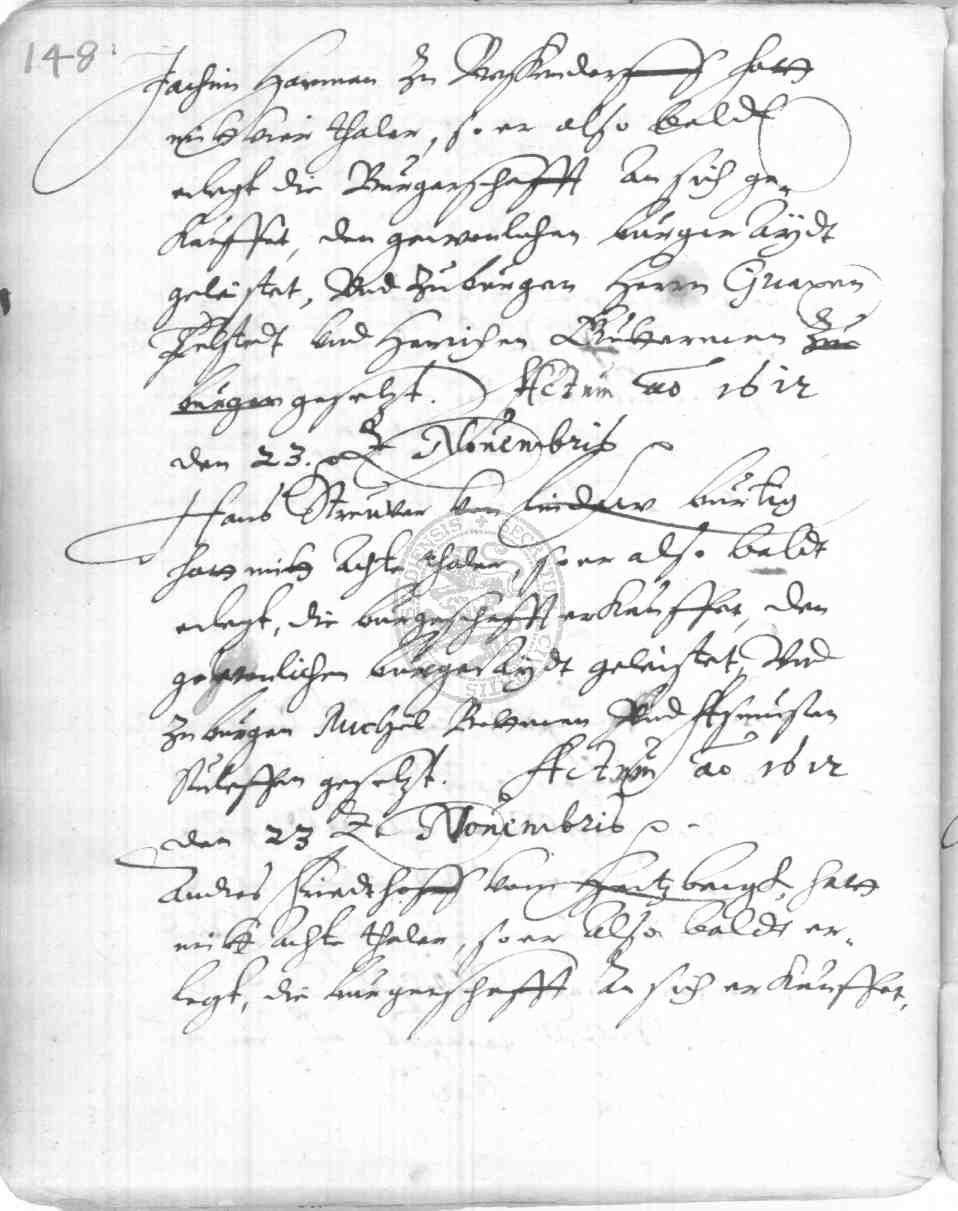 148
Jachim Harman zu hatt
mitt vier thaler, so er also baldt
erlegt die Bürgerschafft an sich ge-
kauffet, den gewonlichen burger Aydt
geleistet, Vnd zu burgen Herrn
vnd Henrichen zu
burgen gesetzt. Actum ao 1612
den 23. Nouembris
Hans Struver von burtig
hatt mitt Achte thaler, so er also baldt
erlegt, die burgeschafft erkauffet, den
gewonlichen burgerAydt geleistet, Vnd
zu burgen Michel Vnd Asmussen
gesetzt. Actum ao 1612
den 23 Nouembris
Andres vom Hertzbergk, hatt
mitt Achte thaler, so er also baldt er-
legt, die burgerschafft an sich erkauffet,